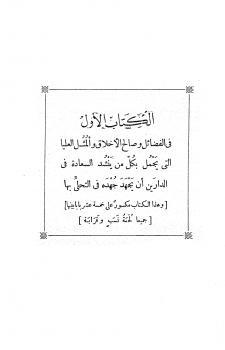 الكتاب الأول
في الفضائل وصالح الأخلاق والمثل العليا
التى يَجْمُل بكُلّ من يَنْشُد السعادة فى
الدارين أن يَجْهَدَ جُهْدَه فى التحلِّى بها
[وهذا الكتاب مكسور على خمسة عشر بابا بينها]
[جميعا لُحْمَةُ نَسَبٍ وقَرَابَة]